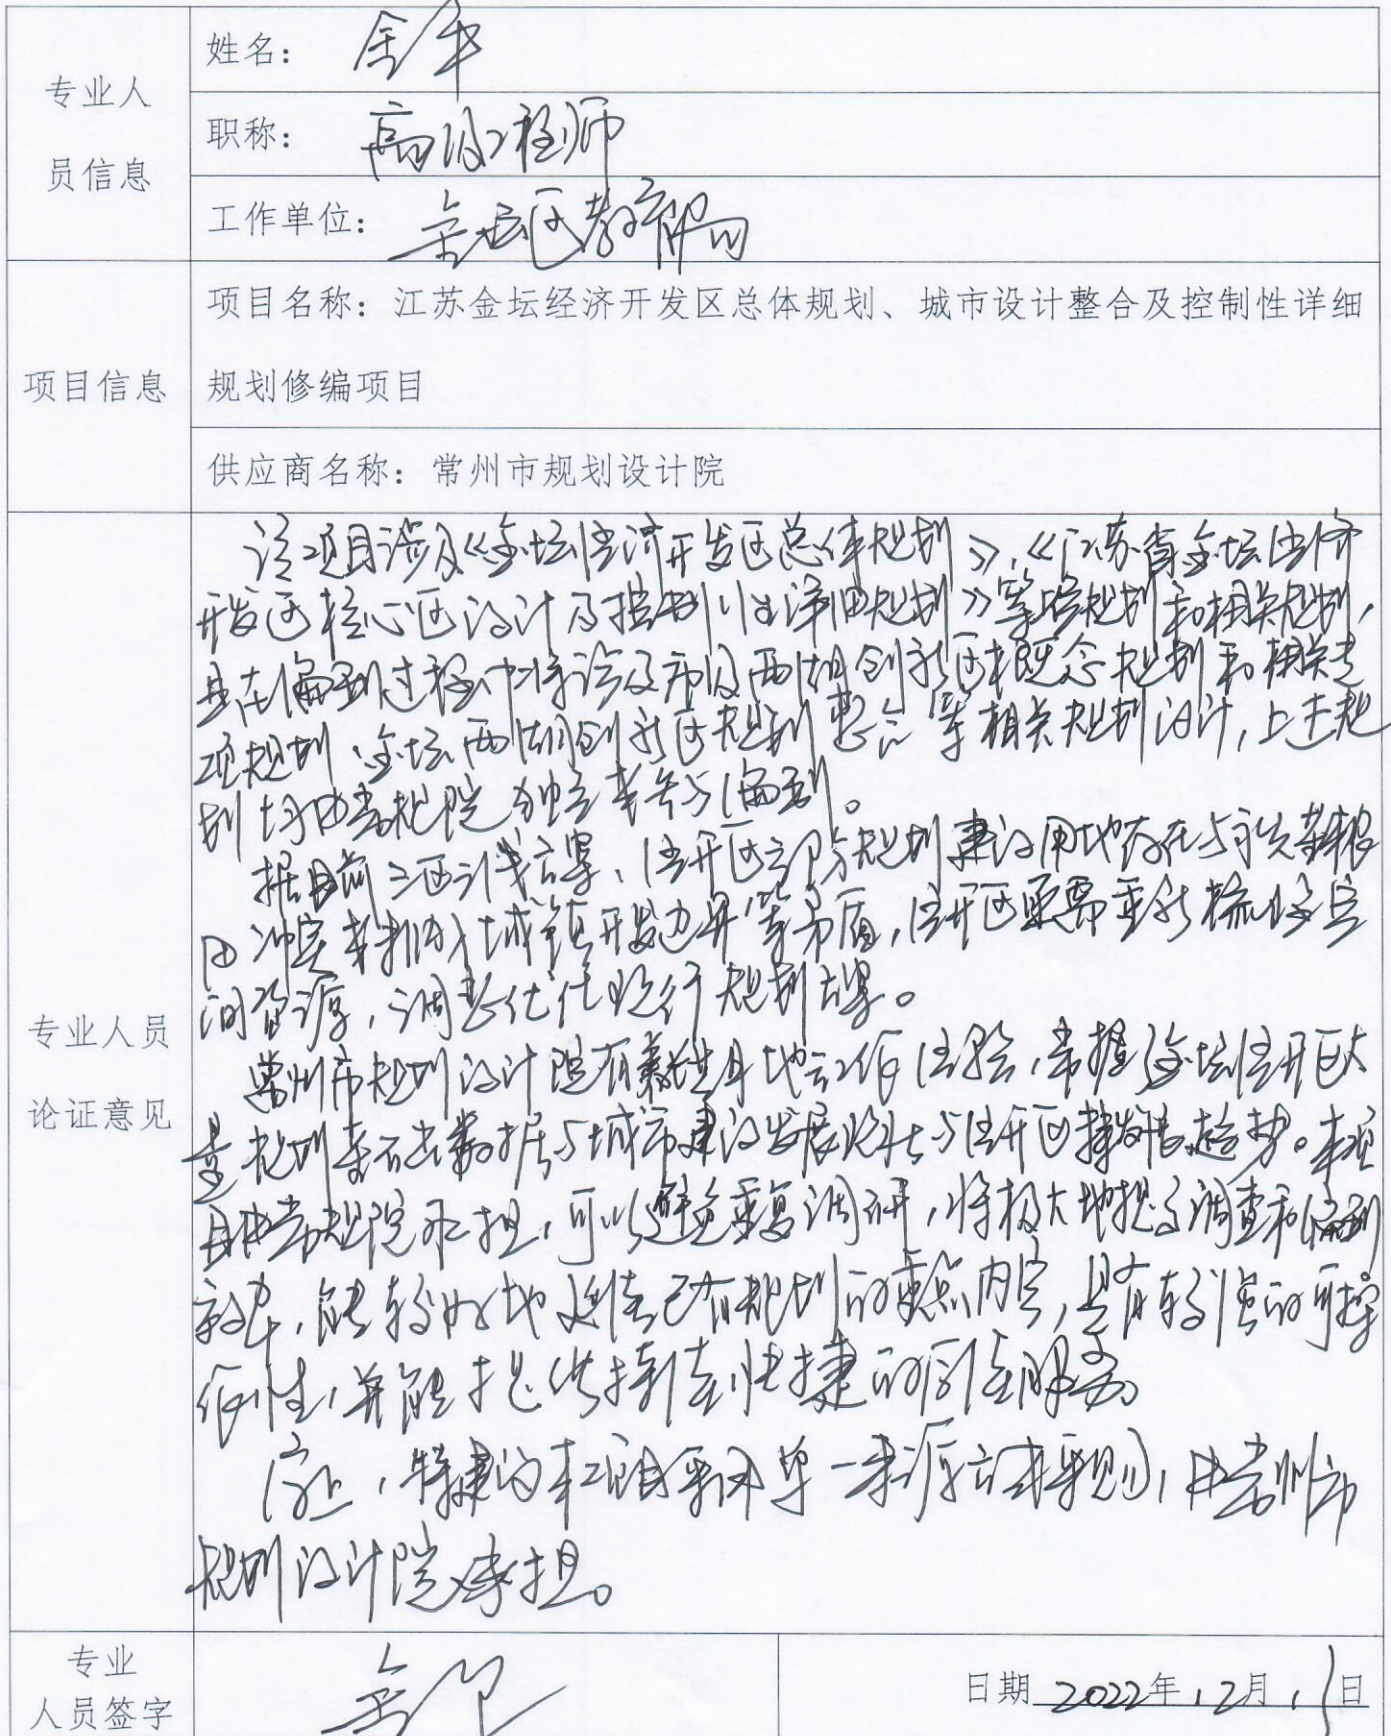 专业人
员信息
姓名：
职称：高级工程师
工作单位：金坛区教育局
项目信息
项目名称：江苏金坛经济开发区总体规划、城市设计整合及控制性详细
规划修编项目
供应商名称：常州市规划设计院
专业人员
论证意见
该项目涉及《金坛经济开发区总体规划》,《江苏省金坛经济
开发区核心区设计及控制性详细规划》等规划和相关规划,
且在编制过程中将涉及市级两湖创新区概念规划和相关专
项规划、金坛两湖创新区规划整合等相关规划设计, 上述规
划均由常规院独立或参与编制。
据目前三区三线方案, 经开区部分规划建设用地存在与永久基本农
田冲突未划入城镇开发边界等矛盾, 经开区亟需重新梳理空
间资源, 调整优化现行规划方案。
常州市规划设计院有本地工作经验, 掌握金坛经开区大
量规划基础数据与城市建设发展现状与经开区发展趋势。本项
目由常规院承担, 可以避免重复调研, 将极大地提高调查和编制
效率, 能较好地延续已有规划的重点内容, 具有较强的可操
作性, 并能提供持续快捷的后续服务。
综上, 特建议本项目采用单一来源方式采购, 由常州市
规划设计院承担。
专业
人员签字
日期 2022年12月11日